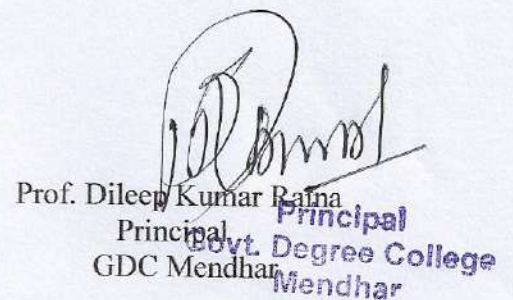 Prof. Dileep Kumar Raina
Principal
GDC Mendhar
Principal
Govt. Degree College
Mendhar